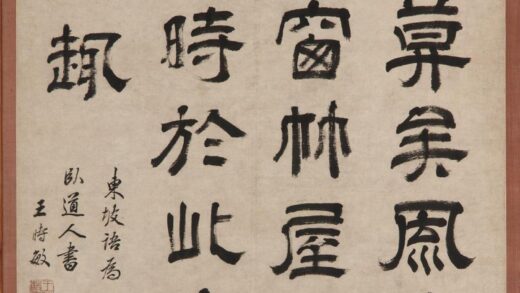 盡矣風
窗竹屋
時於此
趣
東坡語為
臥道人書
王時敏